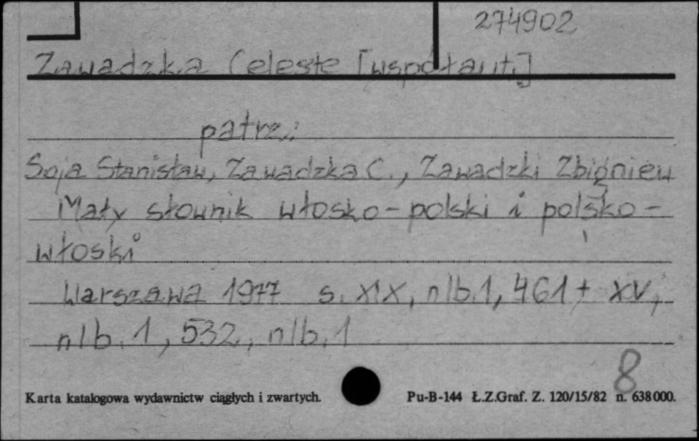 274902
Zawadzka Celeste [współaut.]
patrz:
Soja Stanisław, Zawadzka C., Zawadzki Zbigniew
Mały słownik włosko-polski i polsko-
włoski
Warszawa 1977 s. XIX, nlb.1, 461 + XV,
nlb. 1, 532, nlb. 1
8
Karta katalogowa wydawnictw ciągłych i zwartych. Pu-B-144 Ł.Z.Graf. Z. 120/15/82 n. 638000.